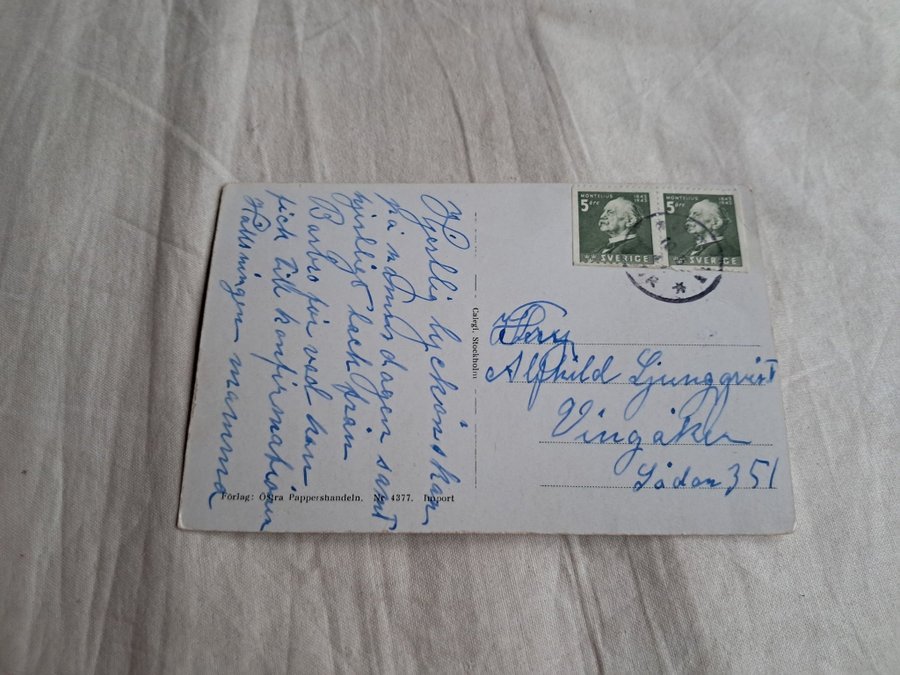 Hjertlig lyckönskan
på namnsdagen samt
hjertligt tack från
Barbro för vad hon
fick till konfirmationen
Hälsningen mamma
Förlag: Östra Pappershandeln. Nr 4377. Import
Calegi, Stockholm
MONTELIUS 1843 1943
5 öre
SVERIGE
MONTELIUS 1843 1943
5 öre
SVERIGE
Alfhild Ljungqvist
Vingåker
Lådan 351